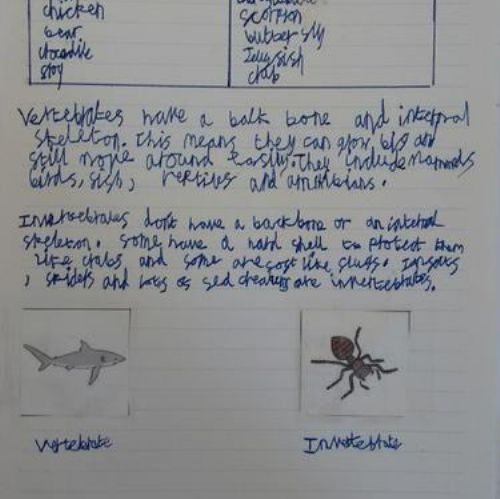 chicken
scorpion
bear
butterfly
crocodile
Jellyfish
crab
Vertebrates have a back bone and internal
skeleton. This means they can grow big and
still move around easily. They include mammals
birds, fish, reptiles and amphibians.
Invertebrates don't have a backbone or an internal
skeleton. Some have a hard shell to protect them
like crabs and some are soft like slugs. Insects
, spiders and lots of sea creatures are invertebrates.
vertebrate
Invertebrate